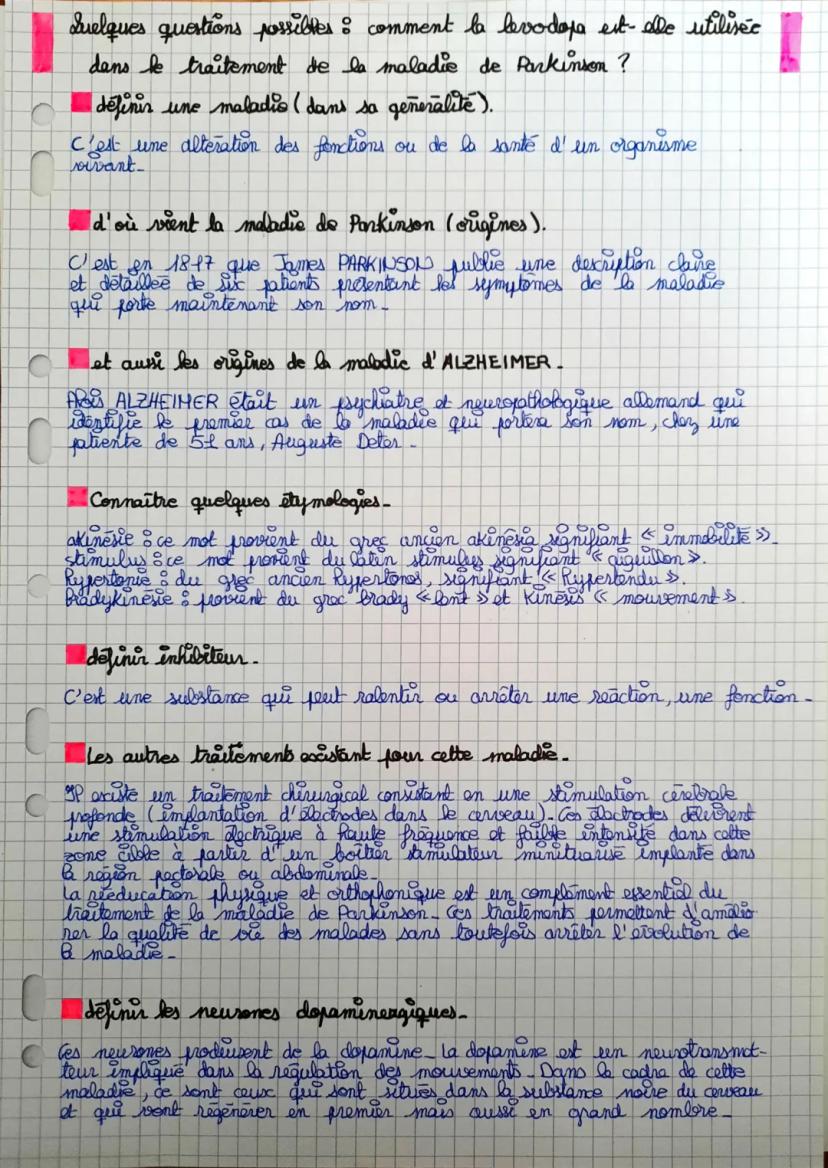 Quelques questions possibles : comment la levodopa est-elle utilisée
dans le traitement de la maladie de Parkinson ?
définir une maladie (dans sa généralité).
C'est une altération des fonctions ou de la santé d'un organisme
vivant.
d'où vient la maladie de Parkinson (origines).
C'est en 1817 que James PARKINSON publie une description claire
et détaillée de six patients présentant les symptomes de la maladie
qui porte maintenant son nom.
et aussi les origines de la maladie d'ALZHEIMER.
Aloïs ALZHEIMER était un psychiatre et neuropathologique allemand qui
identifie le premier cas de la maladie qui portera son nom, chez une
patiente de 51 ans, Auguste Deter.
Connaître quelques étymologies.
akinésie : ce mot provient du grec ancien akinêsia signifiant « immobilité ».
stimulus : ce mot provient du latin stimulus signifiant « aiguillon ».
hypertonie : du grec ancien hypertonos, signifiant « hypertendu ».
bradykinésie : provient du grec brady « lent » et kinésis « mouvement ».
définir inhibiteur.
C'est une substance qui peut ralentir ou arrêter une réaction, une fonction.
Les autres traitements existant pour cette maladie.
Il existe un traitement chirurgical consistant en une stimulation cérébrale
profonde (implantation d'électrodes dans le cerveau). Ces électrodes délivrent
une stimulation électrique à haute fréquence et faible intensité dans cette
zone cible à partir d'un boîtier stimulateur minituarisé implanté dans
la région pectorale ou abdominale.
La rééducation physique et orthophonique est un complément essentiel du
traitement de la maladie de Parkinson. Ces traitements permettent d'amélio
rer la qualité de vie des malades sans toutefois arrêter l'évolution de
la maladie.
définir les neurones dopaminergiques.
Ces neurones produisent de la dopamine. La dopamine est un neurotransmet-
teur impliqué dans la régulation des mouvements. Dans le cadre de cette
maladie, ce sont ceux qui sont situés dans la substance noire du cerveau
et qui vont régénérer en premier mais aussi en grand nombre.